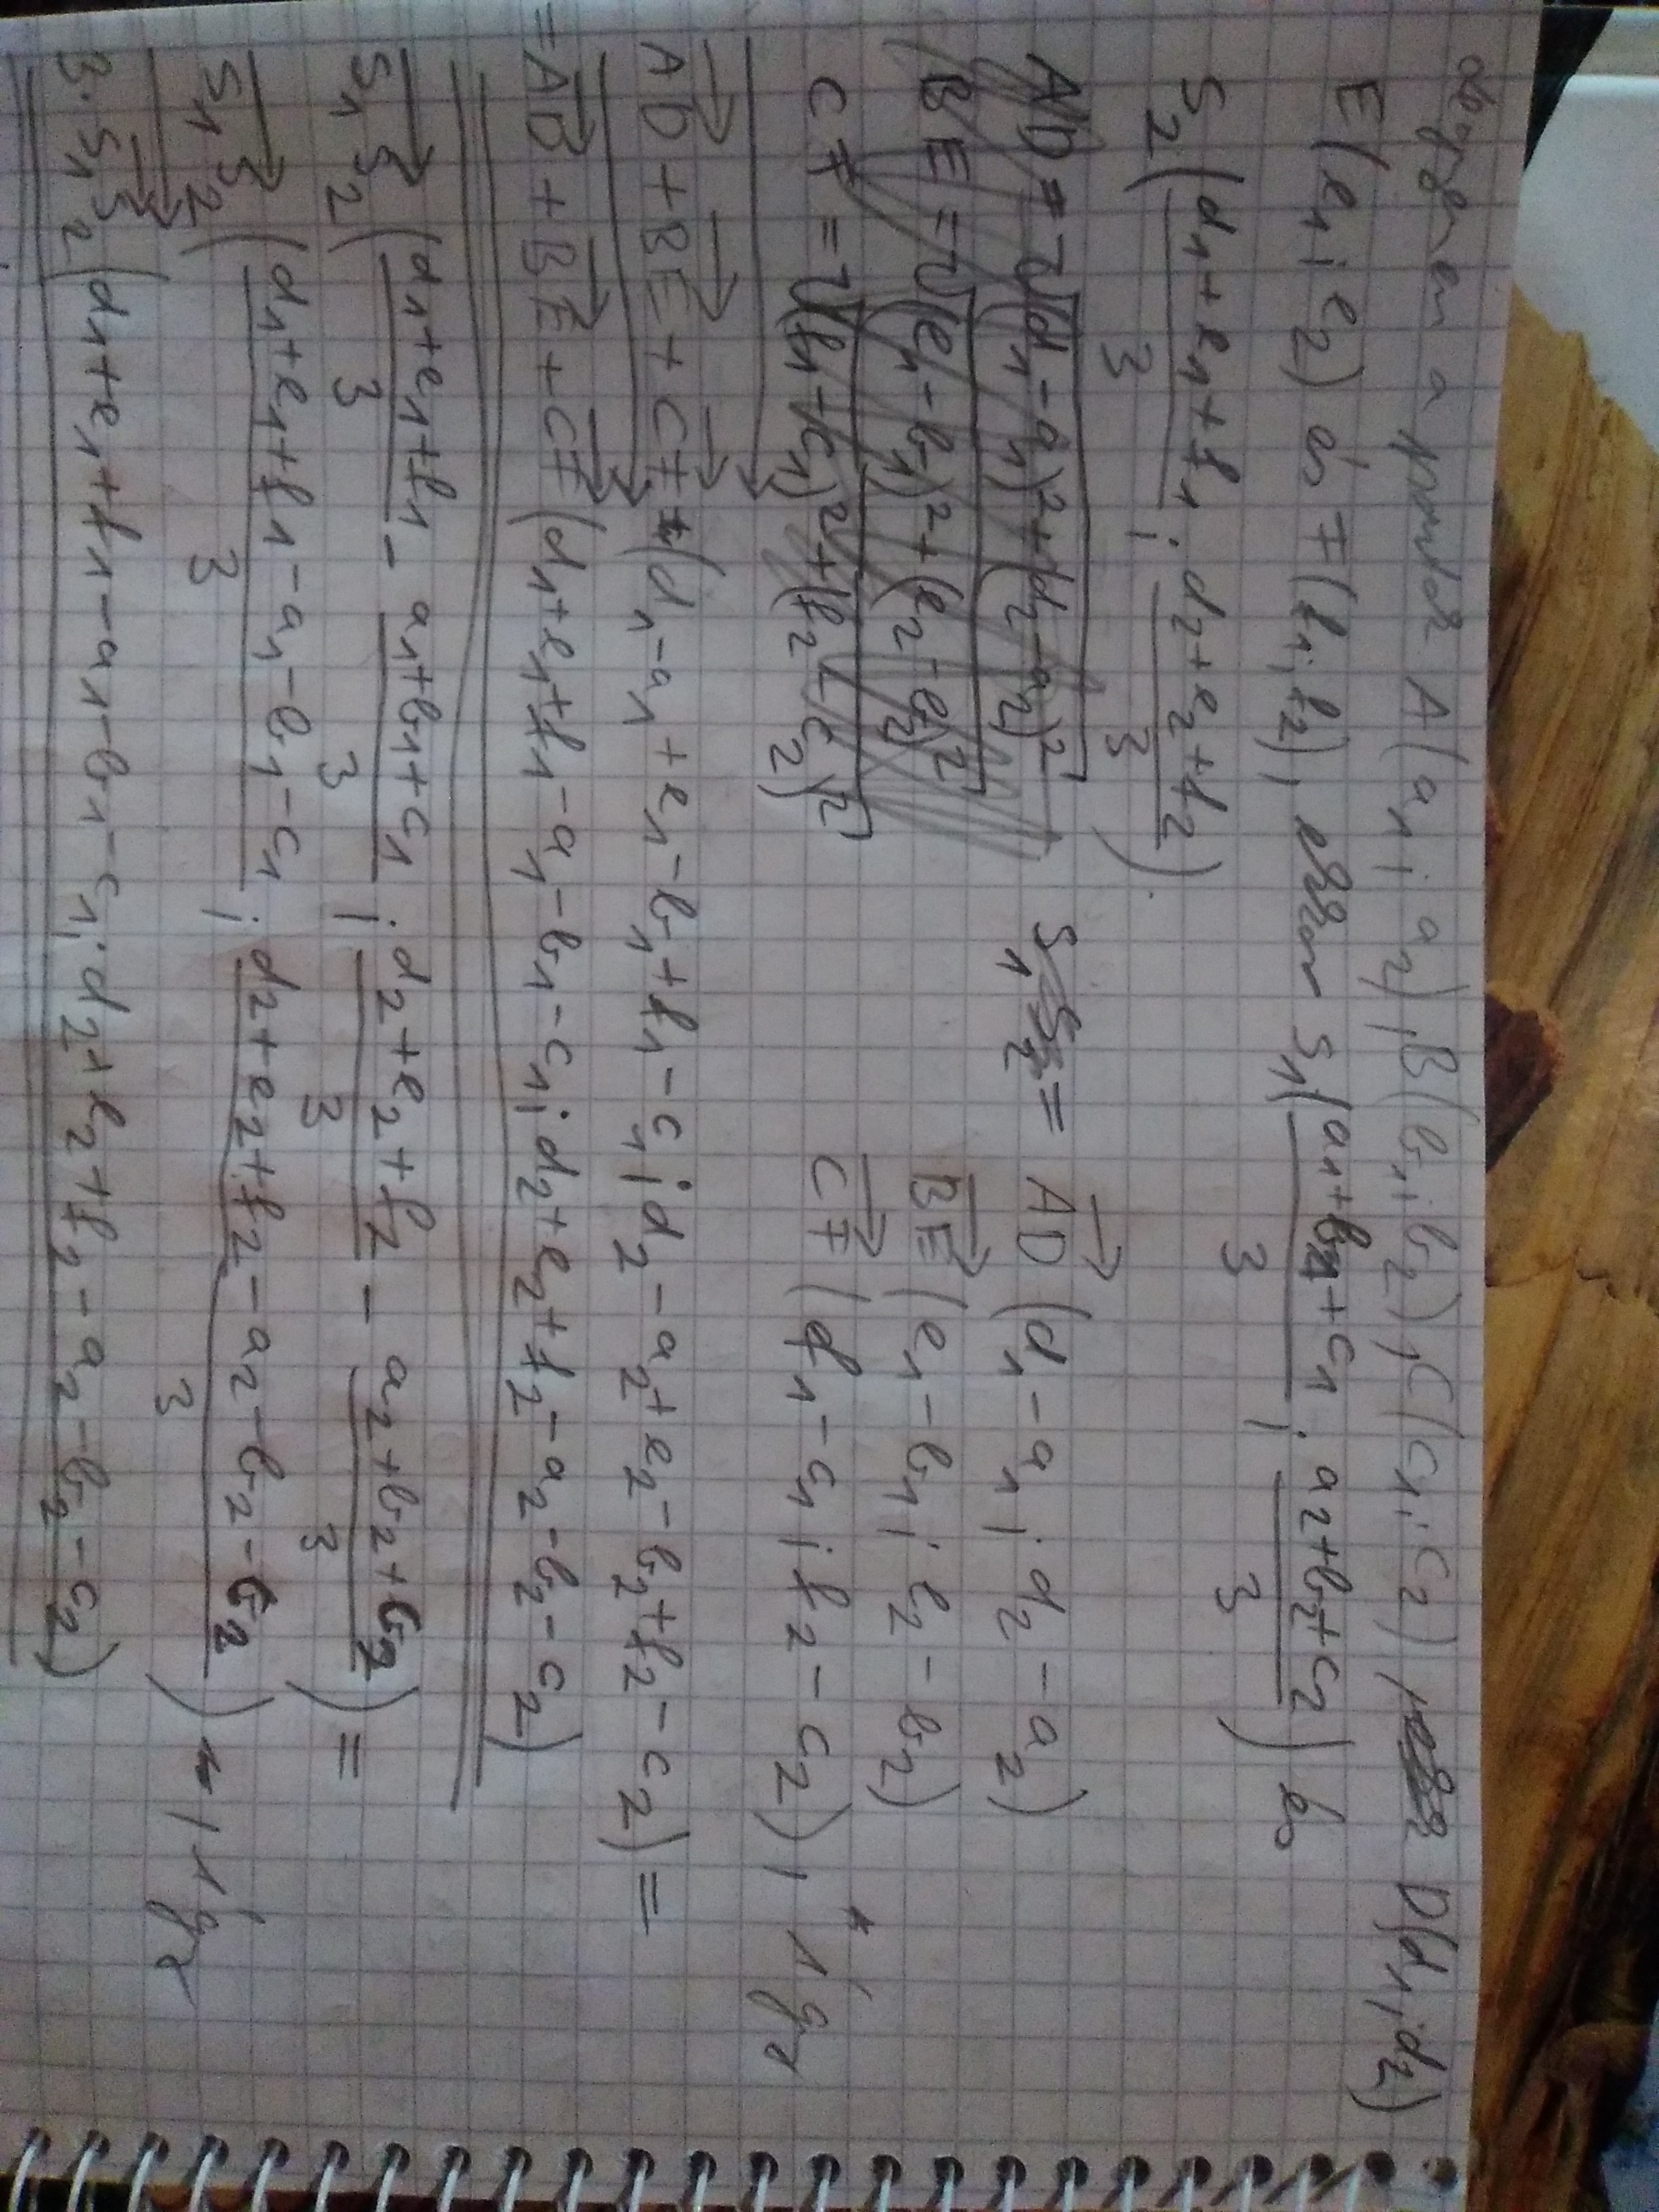 Legyen a pontok A(a1; a2), B(b1; b2), C(c1; c2) D(d1; d2)
E(e1; e2) és F(f1; f2), ekkor S1((a1+b1+c1)/3; (a2+b2+c2)/3) és
S2((d1+e1+f1)/3; (d2+e2+f2)/3).
AD = √((d1-a1)²+(d2-a2)²) S1S2 = AD→(d1-a1; d2-a2)
BE = √((e1-b1)²+(e2-b2)²) BE→(e1-b1; e2-b2)
CF = √((f1-c1)²+(f2-c2)²) CF→(f1-c1; f2-c2), így
AD→+BE→+CF→(d1-a1+e1-b1+f1-c1; d2-a2+e2-b2+f2-c2) =
=AD→+BE→+CF→(d1+e1+f1-a1-b1-c1; d2+e2+f2-a2-b2-c2)
S1S2→((d1+e1+f1)/3 - (a1+b1+c1)/3; (d2+e2+f2)/3 - (a2+b2+c2)/3) =
S1S2→((d1+e1+f1-a1-b1-c1)/3; (d2+e2+f2-a2-b2-c2)/3), így
3·S1S2→(d1+e1+f1-a1-b1-c1; d2+e2+f2-a2-b2-c2)